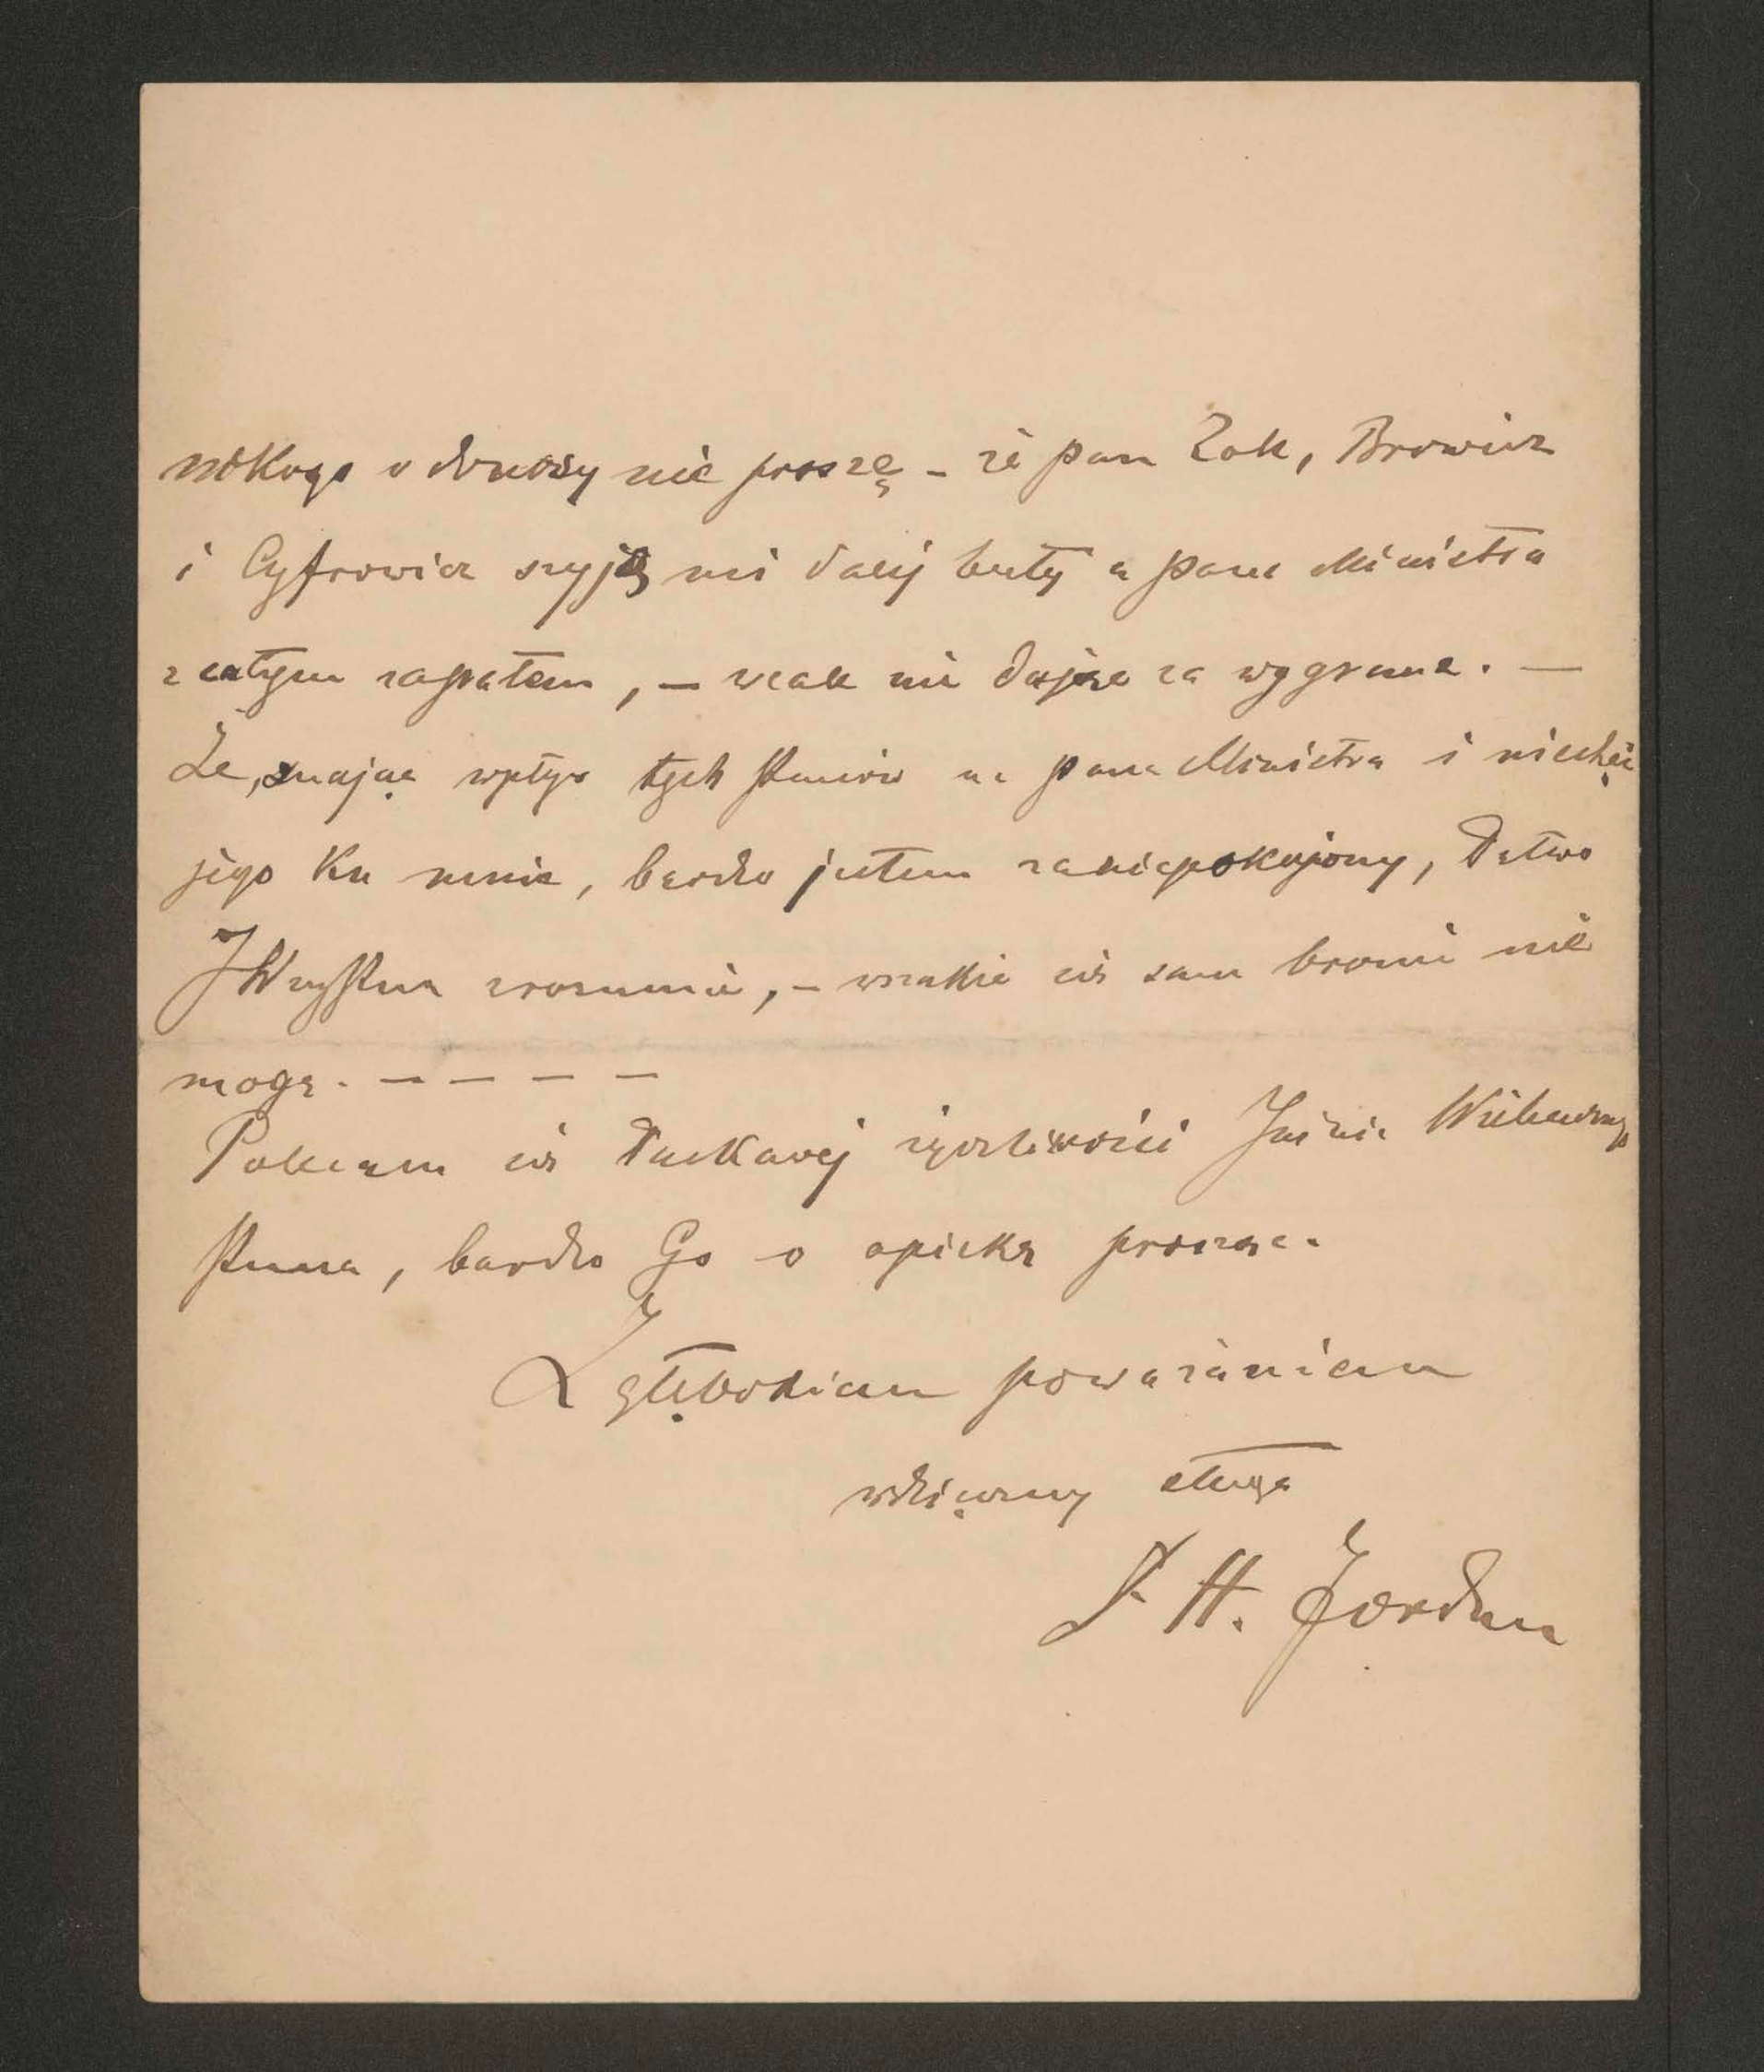 nikogo o donosy nie proszę – że pan Zoll, Browicz
i Cyfrowicz szyją mi dalej buty u pana Ministra
z całym zapałem, – wcale nie dając za wygraną. —
Że, znając wpływ tych Panów na pana Ministra i niechęć
jego ku mnie, bardzo jestem zaniepokojony, łatwo
JWny Pan zrozumie, – wszakże się sam bronić nie
mogę. — — — —
Polecam się łaskawej życzliwości Jaśnie Wielmożnego
Pana, bardzo Go o opiekę prosząc.
Z głębokiem poważaniem
wdzięczny sługa
H. Jordan